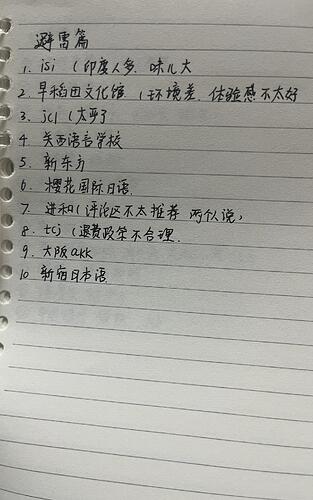 避雷篇
1. isi （印度人多. 味儿大
2. 早稻田文化馆 （环境差. 体验感不太好
3. jcl （太严了
4. 关西语言学校
5. 新东方
6. 樱花国际日语.
7. 进和（评论区不太推荐 两似说）
8. tcj （退费政策不合理.
9. 大阪akk
10 新宿日本语.